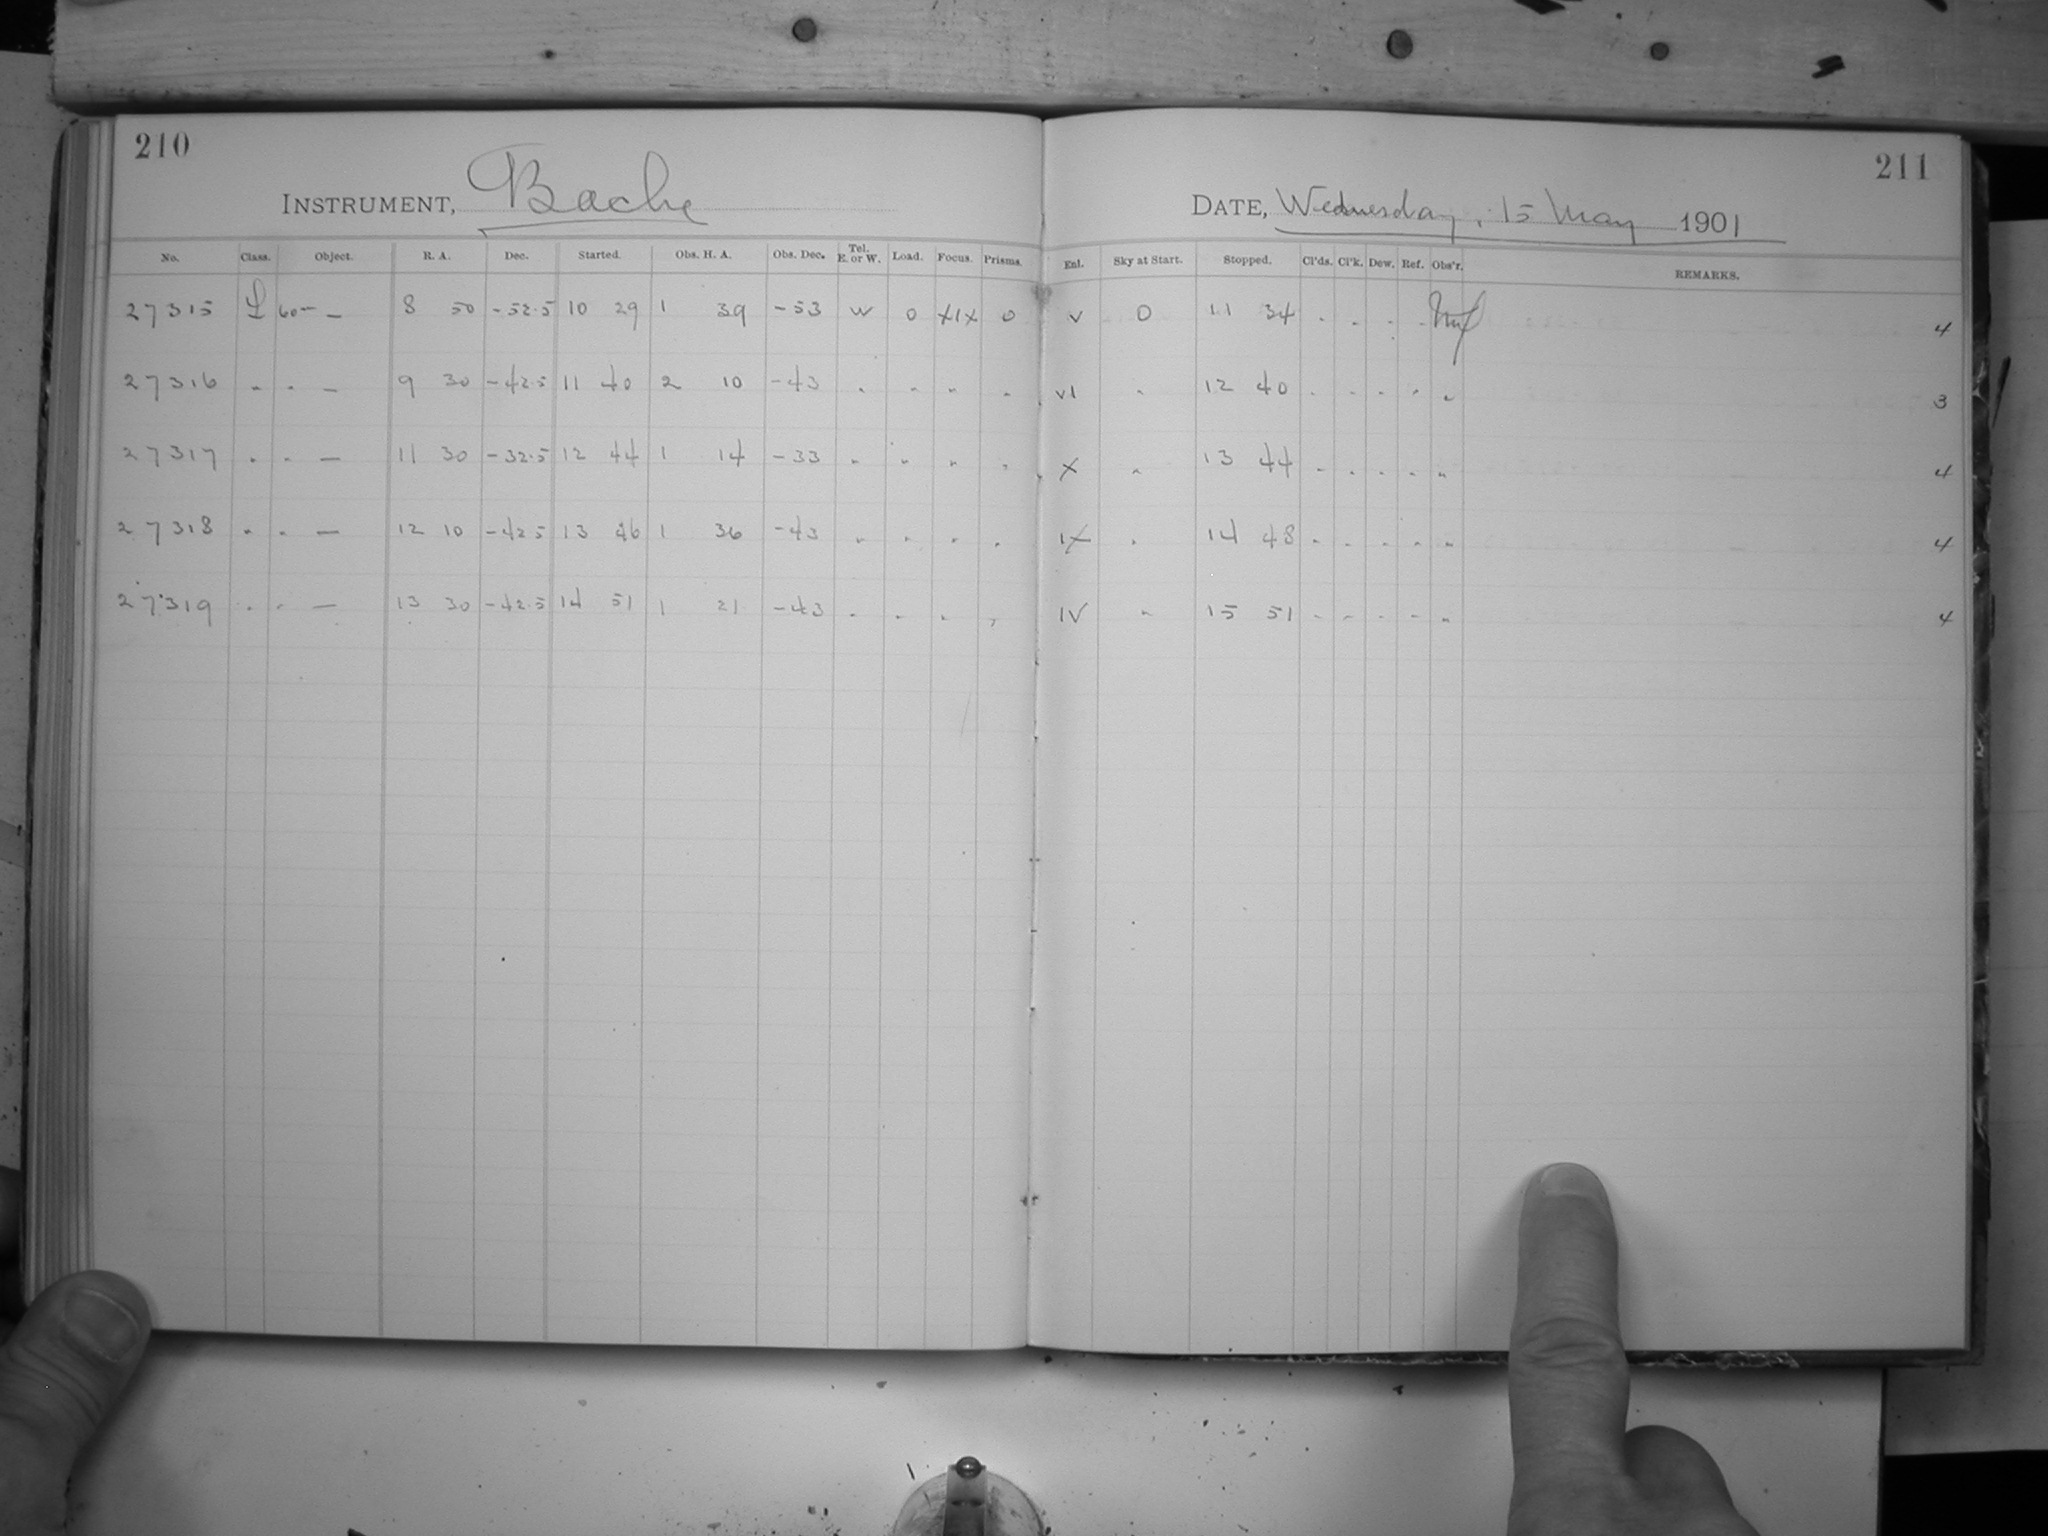 210
INSTRUMENT, Bache
No. Class. Object. R. A. Dec. Started. Obs. H. A. Obs. Dec. Tel. E. or W. Load. Focus. Prisms.
27315 L 60 — — 8 50 -52.5 10 29 1 39 -53 W 0 XIX 0
27316 " " — 9 30 -42.5 11 40 2 10 -43 " " " "
27317 " " — 11 30 -32.5 12 44 1 14 -33 " " " "
27318 " " — 12 10 -42.5 13 46 1 36 -43 " " " "
27319 " " — 13 30 -42.5 14 51 1 21 -43 " " " "
211
DATE, Wednesday, 15 May 1901
Enl. Sky at Start. Stopped. Cl'ds. Cl'k. Dew. Ref. Obs'r. REMARKS.
V 0 11 34 . . . . 4
VI " 12 40 . . . . " 3
X " 13 44 . . . . " 4
IX " 14 48 . . . . " 4
IV " 15 51 . . . . " 4